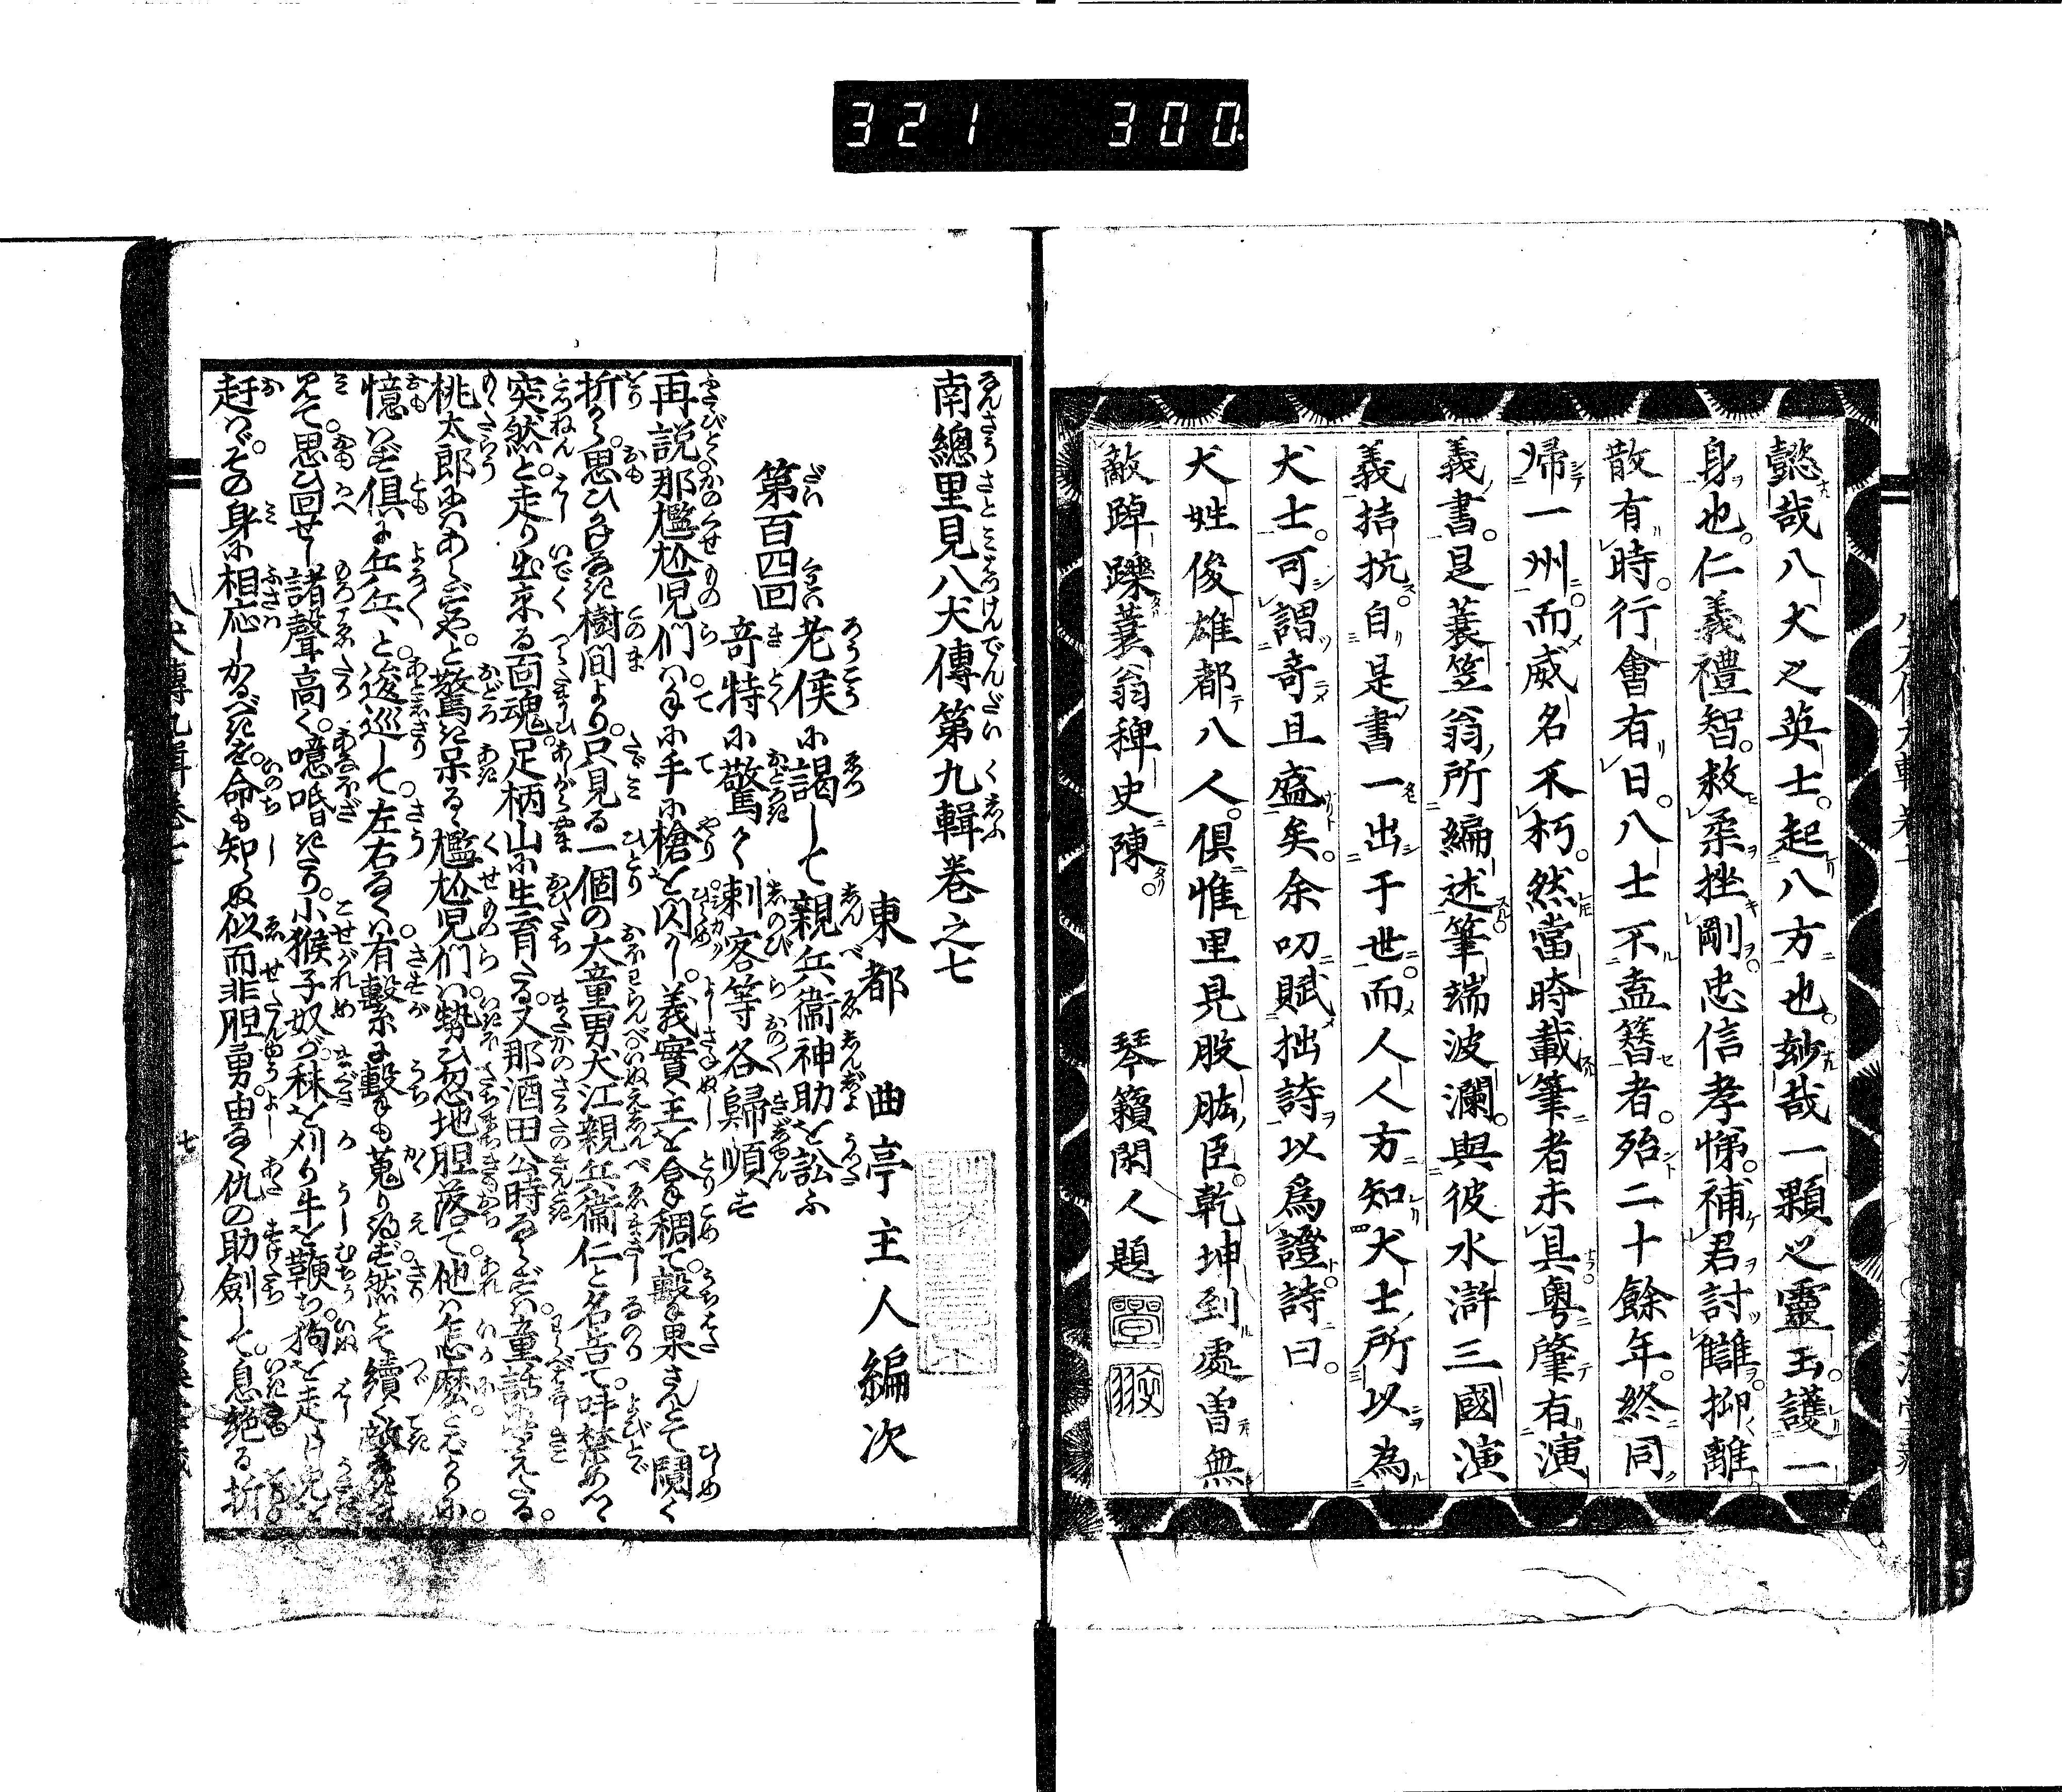 321 300
懿哉八犬之英士。起八方也。妙哉一顆之靈玉。護一
身也。仁義禮智。救柔挫剛。忠信孝悌。補君討讎。抑離
散有時。行會有日。八士不盍簪者。殆二十餘年。終同
帰一州。而威名不朽。然當時載筆者未具。粤肇有演
義書。是蓑笠翁所編述。筆端波瀾。與彼水滸三國演
義拮抗。自是書一出于世。而人人方知犬士所以為
犬士。可謂奇且盛矣。余叨賦拙詩。以為證詩。曰。
犬姓俊雄都八人。俱惟里見股肱臣。乾坤到處曽無
敵。踔躒蓑翁稗史陳。
琴籟閑人題
南總里見八犬傳第九輯巻之七
東都 曲亭主人編次
第百四回
老侯に謁して親兵衛神助を訟ふ
竒特に驚く刺客等各歸順す
再説那檻尬児們は手に手に槍を閃かし義實主を合稠て撃果さんとて鬩く
折から思ひかけなき樹間より只見る一個の大童男犬江親兵衛仁と名告て呼禁めつゝ
突然と走り出來る面魂足柄山に生育たる又那酒田公時ならずは童話に聞えたる
桃太郎にはあらずやと驚き呆るゝ檻尬児們は勢ひ忽地胆落て他は怎麼とばかりに
憶はず倶に兵兵と逡巡して左右なくは有繋に撃も蒐り得ず然とて續く敵
見て思ひ回せし諸聲高く噫呧昏きたり小猴子奴が秣を刈り牛を鞭ち狗を走
赶はゞその身に相應しかるべきを命も知らぬ似而非胆勇由なき仇の助劍して息絶る折